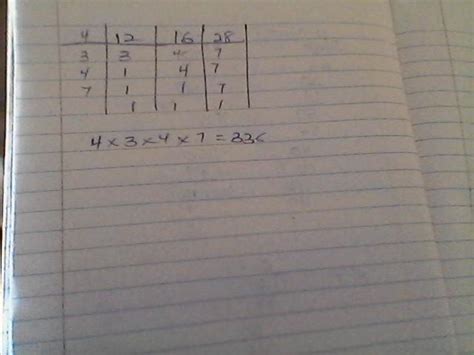 4 | 12 | 16 | 28
3 | 3 | 4 | 7
4 | 1 | 4 | 7
7 | 1 | 1 | 7
1 | 1 | 1
4 x 3 x 4 x 7 = 336